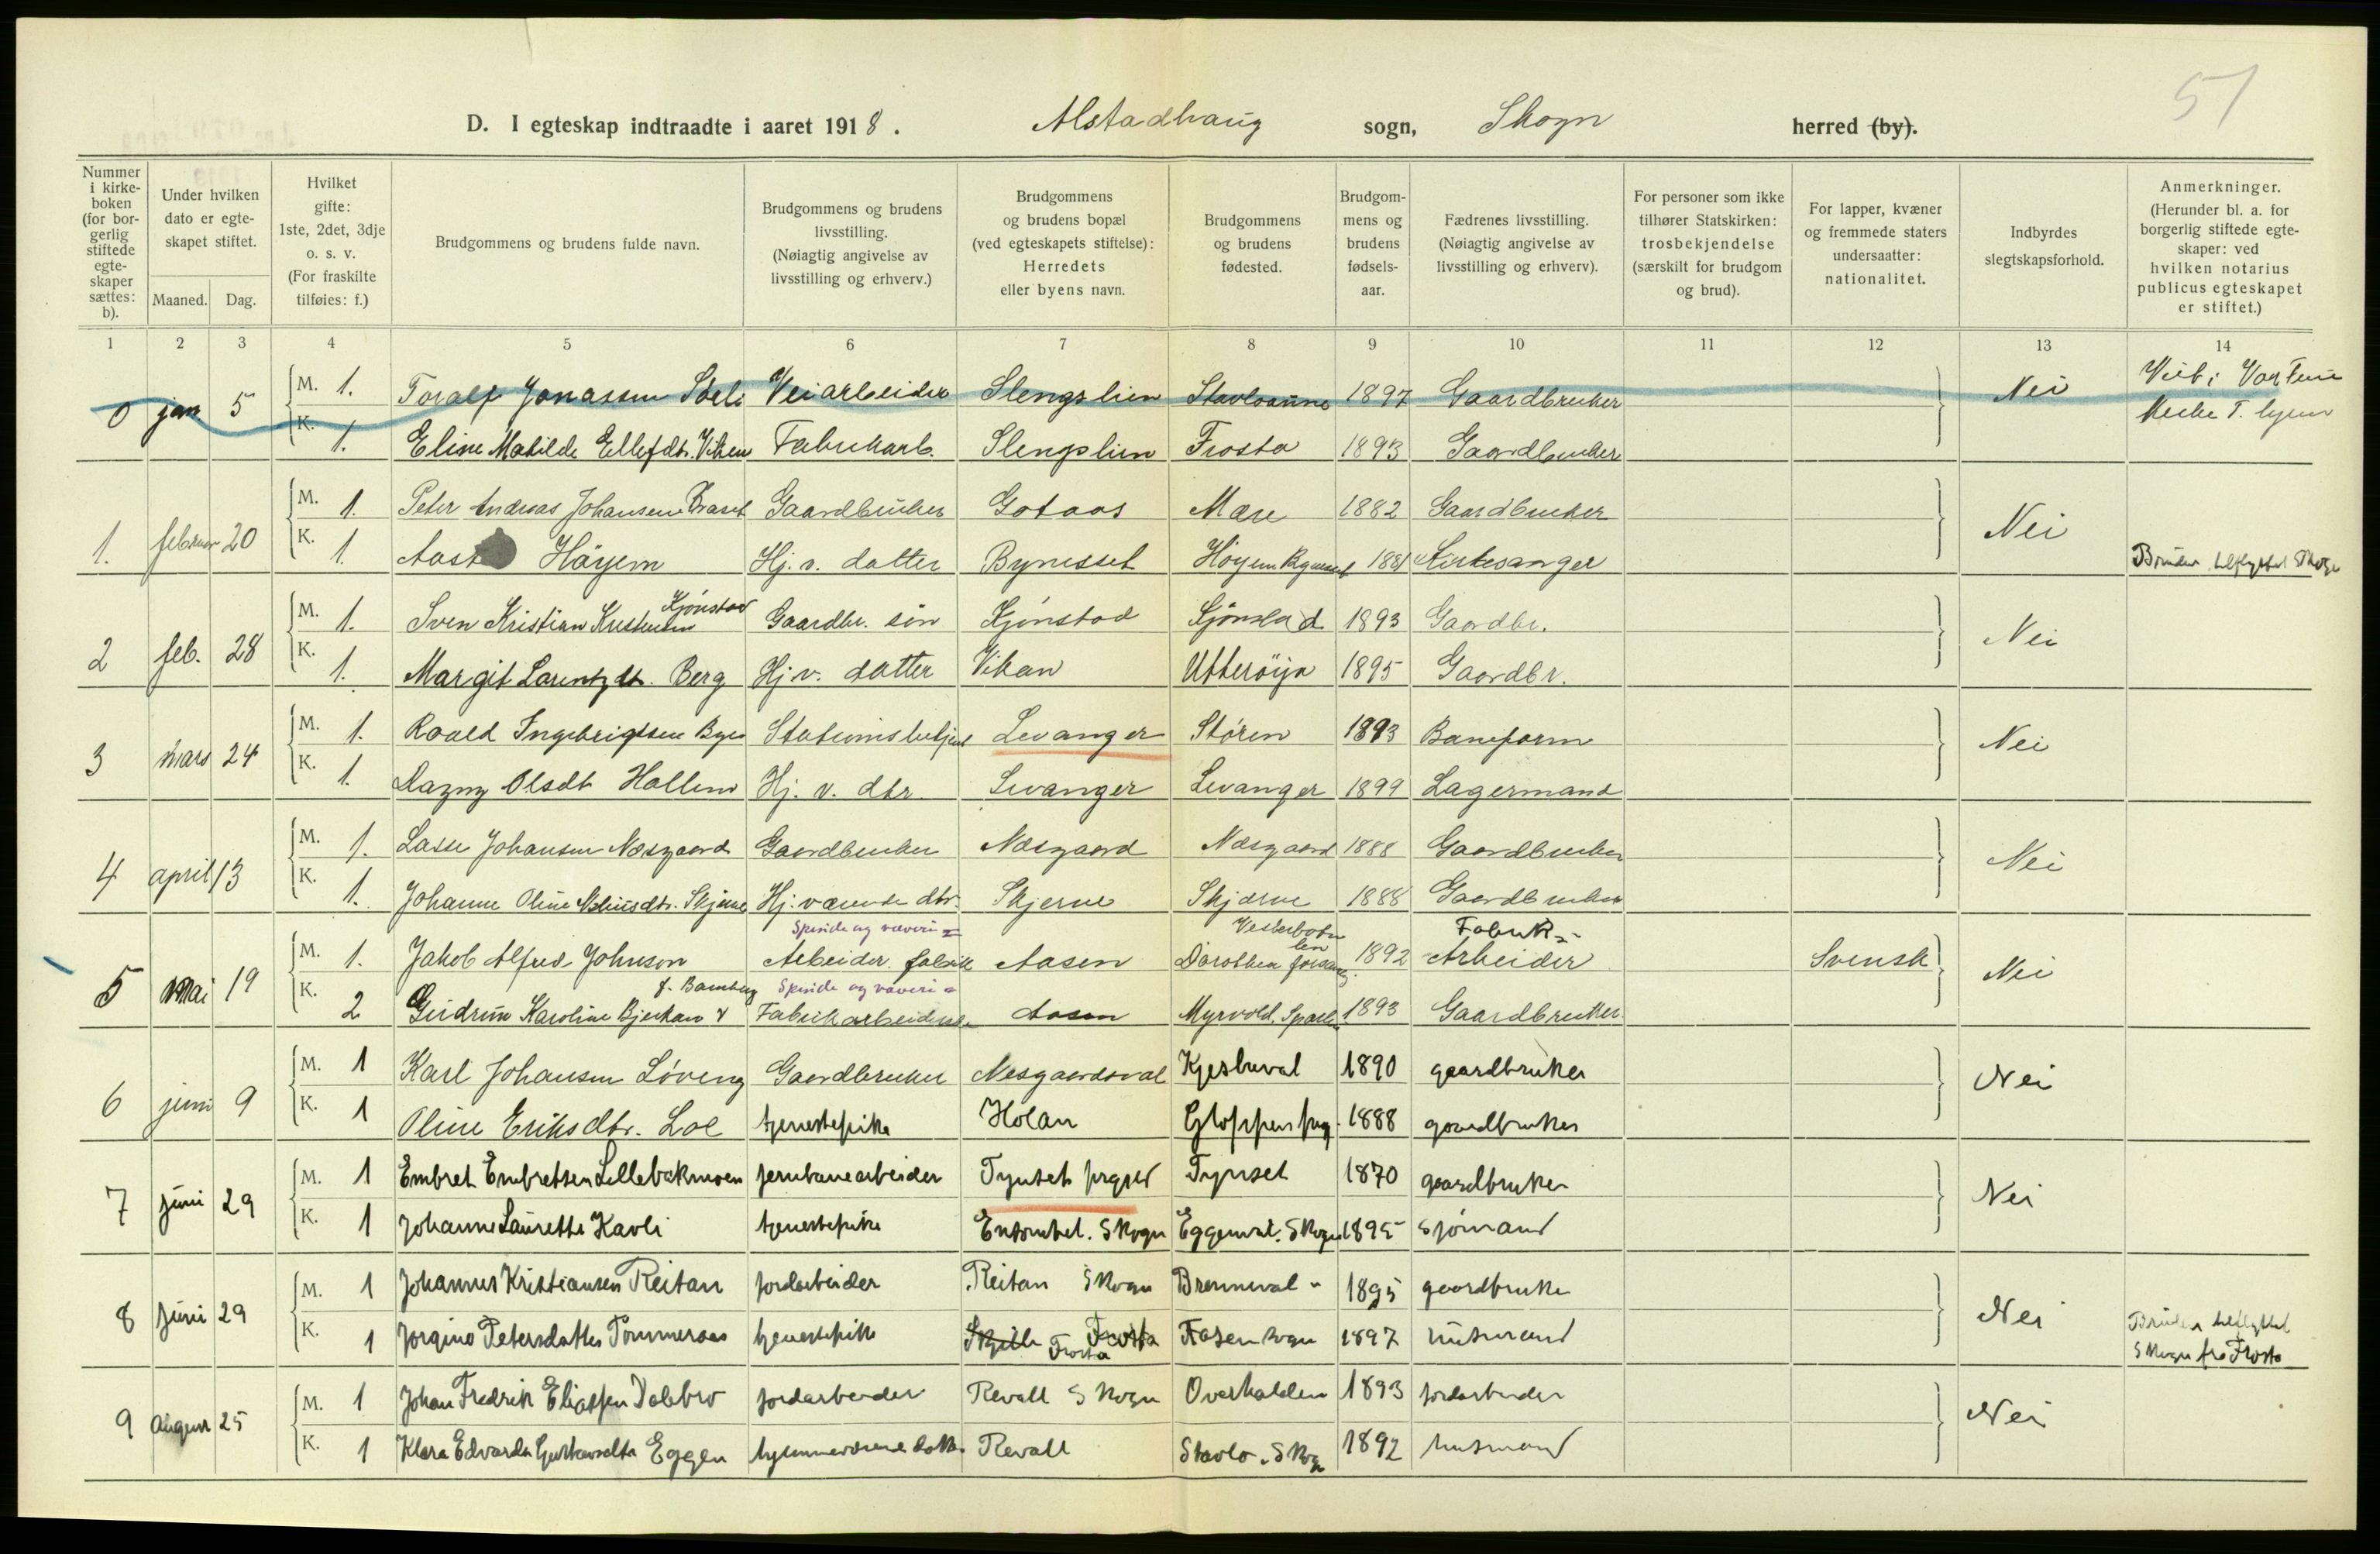 51
D. I egteskap indtraadte i aaret 1918. Alstadhaug sogn, Skogn herred (by).
Nummer i kirkeboken (for borgerlig stiftede egteskaper sættes: b).
Under hvilken dato er egteskapet stiftet.
Maaned. Dag.
Hvilket gifte: 1ste, 2det, 3dje o. s. v. (For fraskilte tilføies: f.)
Brudgommens og brudens fulde navn.
Brudgommens og brudens livsstilling. (Nøiagtig angivelse av livsstilling og erhverv.)
Brudgommens og brudens bopæl (ved egteskapets stiftelse): Herredets eller byens navn.
Brudgommens og brudens fødested.
Brudgommens og brudens fødselsaar.
Fædrenes livsstilling. (Nøiagtig angivelse av livsstilling og erhverv).
For personer som ikke tilhører Statskirken: trosbekjendelse (særskilt for brudgom og brud).
For lapper, kvæner og fremmede staters undersaatter: nationalitet.
Indbyrdes slegtskapsforhold.
Anmerkninger. (Herunder bl. a. for borgerlig stiftede egteskaper: ved hvilken notarius publicus egteskapet er stiftet.)
1 2 3 4 5 6 7 8 9 10 11 12 13 14
0 jan 5 M. 1. Toralf Jonassen Veiarbeider Slengslien Stavloaunne 1897 Gaardbruker Nei
K. 1. Eline Matilde Ellefdt. Viken Fabrikarb. Slengslien Frosta 1893 Gaardbruker
1. februar 20 M. 1. Peter Andreas Johansen Braset Gaardbruker Gotaas Mære 1882 Gaardbruker Nei
K. 1. Aast Höyem Hj. v. datter Bynesset Höyem Bynesset 1881 Kirkesanger Bruden tilflyttet Skogn
2 feb. 28 M. 1. Sven Kristian Kristensen Kjönstad Gaardbr. sön Kjönstad Kjönstad 1893 Gaardbr. Nei
K. 1. Margit Larentzdt. Berg Hj. v. datter Vikan Ytteröya 1895 Gaardbr.
3 mars 24 M. 1. Roald Ingebrigtsen Bye Stationsbetjent Levanger Støren 1893 Baneform Nei
K. 1. Dagny Olsdt Hallem Hj. v. dtr. Levanger Levanger 1899 Lagermand
4 april 13 M. 1. Lasse Johansen Næsgaard Gaardbruker Næsgaard Næsgaard 1888 Gaardbruker Nei
K. 1. Johanne Oline dtr. Skjerve Hj. værende dtr. Skjerve Skjerve 1888 Gaardbruker
5 Mai 19 M. 1. Jakob Alfred Johnson Spinde og væveri= Arbeider fabrik Aasen Vesterbotnen Dorothea 1892 Fabrik= Arbeider Svensk Nei
K. 2 Gudrun Karoline Bjerkan f. Bamberg Spinde og væveri= Fabrikarbeiderske Aasen Myrvold, Sparbu 1893 Gaardbruker
6 juni 9 M. 1 Karl Johansen Løveng Gaardbruker Nesgaardsval Kjesbuval 1890 gaardbruker Nei
K. 1 Oline Eriksdtr. Loe tjenestepike Holan Gloppen prg. 1888 gaardbruker
7 juni 29 M. 1 Embret Embretsen Lillebakmoen jernbanearbeider Tynset prgjeld Tynset 1870 gaardbruker Nei
K. 1 Johanne Laurette Kavli tjenestepike Skogn Eggenval. Skogn 1895 sjømand
8 Juni 29 M. 1 Johannes Kristiansen Reitan jordarbeider Reitan Skogn Brenneval " 1895 gaardbruker Nei
K. 1 Jorgine Petersdatter Tommeraas tjenestepike Frosta Frosta Aasen sogn 1897 husmand Bruden tilflyttet Skogn fra Frosta
9 August 25 M. 1 Johan Fredrik Eliassen Dalebro jordarbeider Revall Skogn Overhalden 1893 jordarbeider Nei
K. 1 Klara Edvarda Gustavsdtr Eggen hjemmeværende datter Revall Stavlo. Skogn 1892 husmand